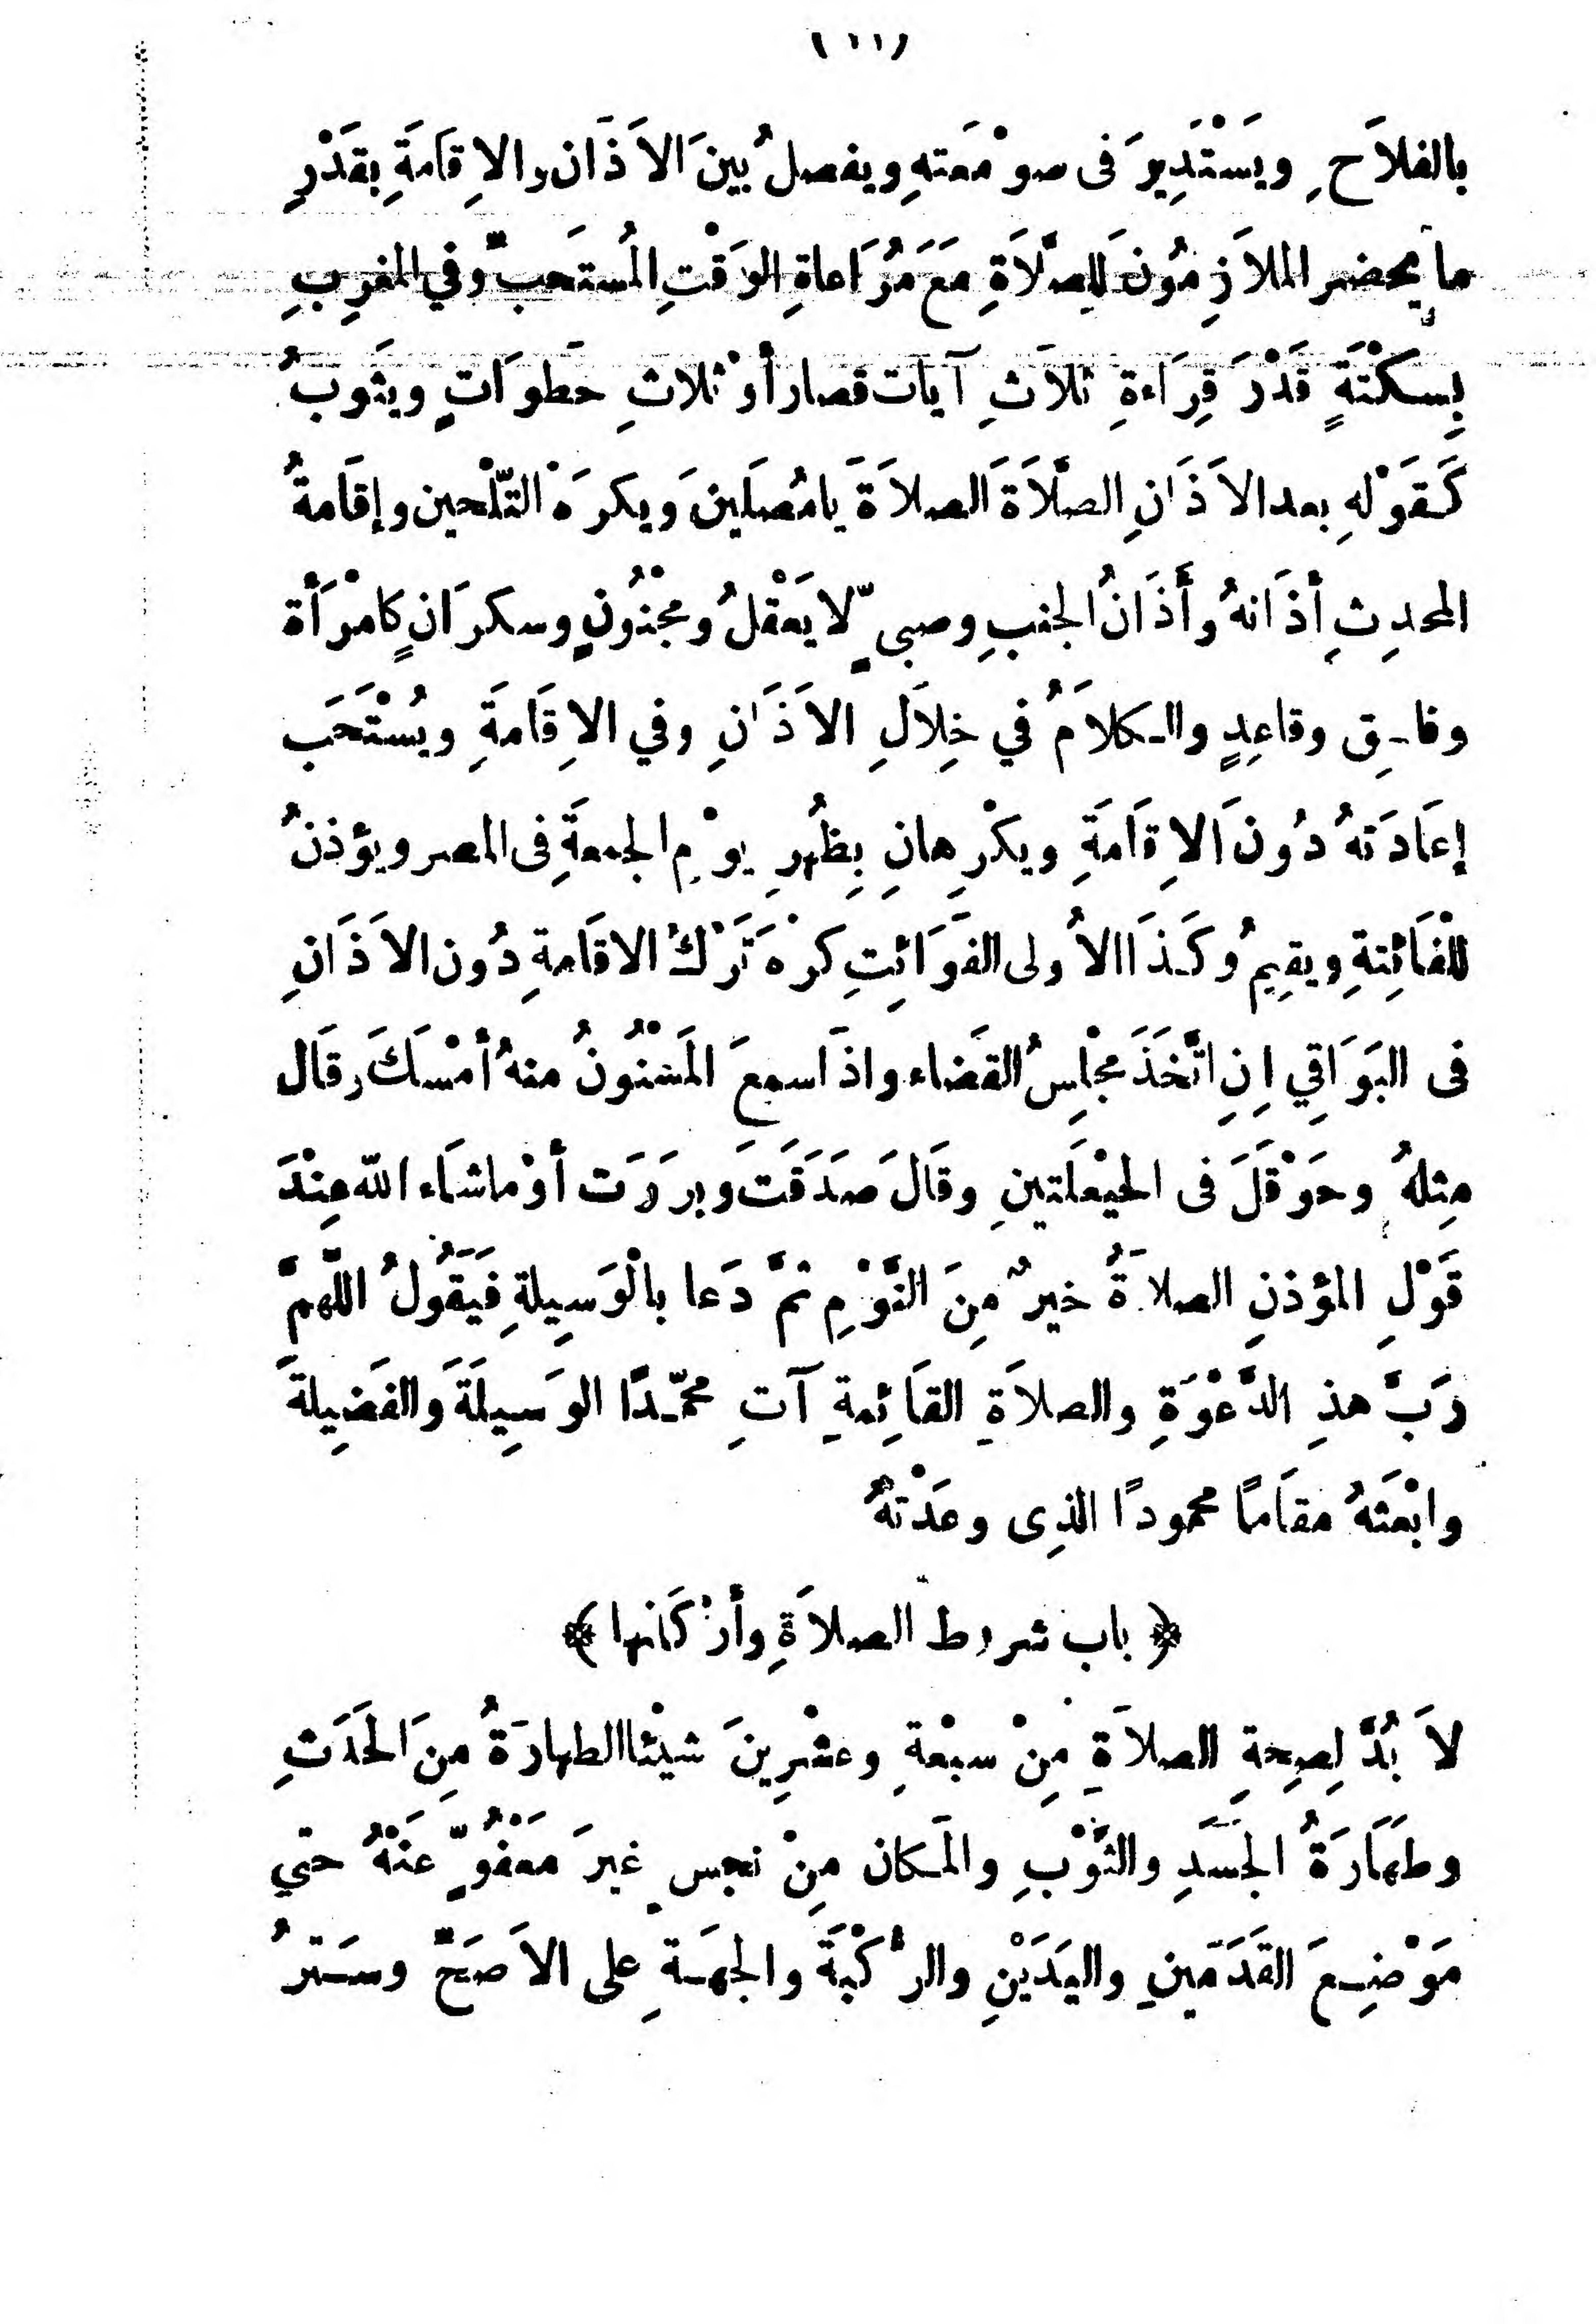 (١١)
بالفلاَحِ ويَسْتَدِيرَ فى صوْمَعتهِ ويفصلُ بينَ الاَذَان والاِقَامَةِ بِقَدْرِ
ما يحضر الملاَزِمُونَ لِلصَّلاَةِ مَعَ مُرَاعاةِ الوَقْتِ المُستَحبِّ وفي المغرِبِ
بِسكْتَةٍ قَدْرَ قِرَاءةِ ثلاَثِ آيات قصار أوْ ثلاثِ خَطوَاتٍ ويثَوبُ
كَقَوْلهِ بعد الاَذَانِ الصَّلاَةَ الصلاَةَ يا مُصَلينَ وَيكرَهُ التَّلْحين وإقَامةُ
المحدِثِ أذَانهُ وأَذَانُ الجنبِ وصبىٍّ لا يَعْقلُ ومجْنُونٍ وسكرَانٍ كامْرَأة
وفاسِق وقاعِدٍ والكلاَمُ في خِلاَلِ الاَذَانِ وفي الاِقَامةِ ويُسْتَحَب
إعَادَتهُ دُونَ الاِقَامَةِ ويكْرهانِ بِظُهرِ يوْمِ الجمعَةِ فى المصر ويؤذنُ
للْفَائِتةِ ويقِيمُ وكَذَا الاُولى الفَوَائِتِ كرْه تَرْكُ الاقَامةِ دُون الاَذَانِ
فى البَوَاقِي اِنِ اتَّخَذَ مجْلِسُ القضَاء واذَا سمعَ المَسْنُونُ منهُ أمْسَكَ وقَال
مِثلهُ وحَوْقَلَ فى الحيْعَلَتينِ وقَالَ صَدَقَتَ وبرَرَت أوْ ماشَاء الله عِنْدَ
قَوْلِ المؤذنِ الصلاَةُ خيرٌ مِنَ النَّوْمِ ثمَّ دَعا بالْوَسِيلةِ فَيَقُولُ اللَّهمَّ
رَبَّ هذِ الدَّعْوَةِ والصلاَةِ القَائِمةِ آتِ محمّدًا الوَسِيلَةَ والفَضِيلةَ
وابْعَثهُ مقَامًا محمودًا الذِى وعَدْتهُ
﴿ باب شروط الصلاَةِ وأرْكَانها ﴾
لاَ بُدَّ لِصِحةِ الصلاَةِ مِنْ سبْعةِ وعشْرِينَ شيْئا الطهارَةُ مِنَ الحَدَثِ
وطَهَارَةُ الجَسَدِ والثَّوْبِ والمَكان مِنْ نجسٍ غيرَ مَعْفُوٍّ عَنْهُ حتي
مَوْضِعَ القَدَمَينِ واليَدَيْنِ والرُّكْبَةَ والجهَةِ على الاَصَحِّ وسَترُ